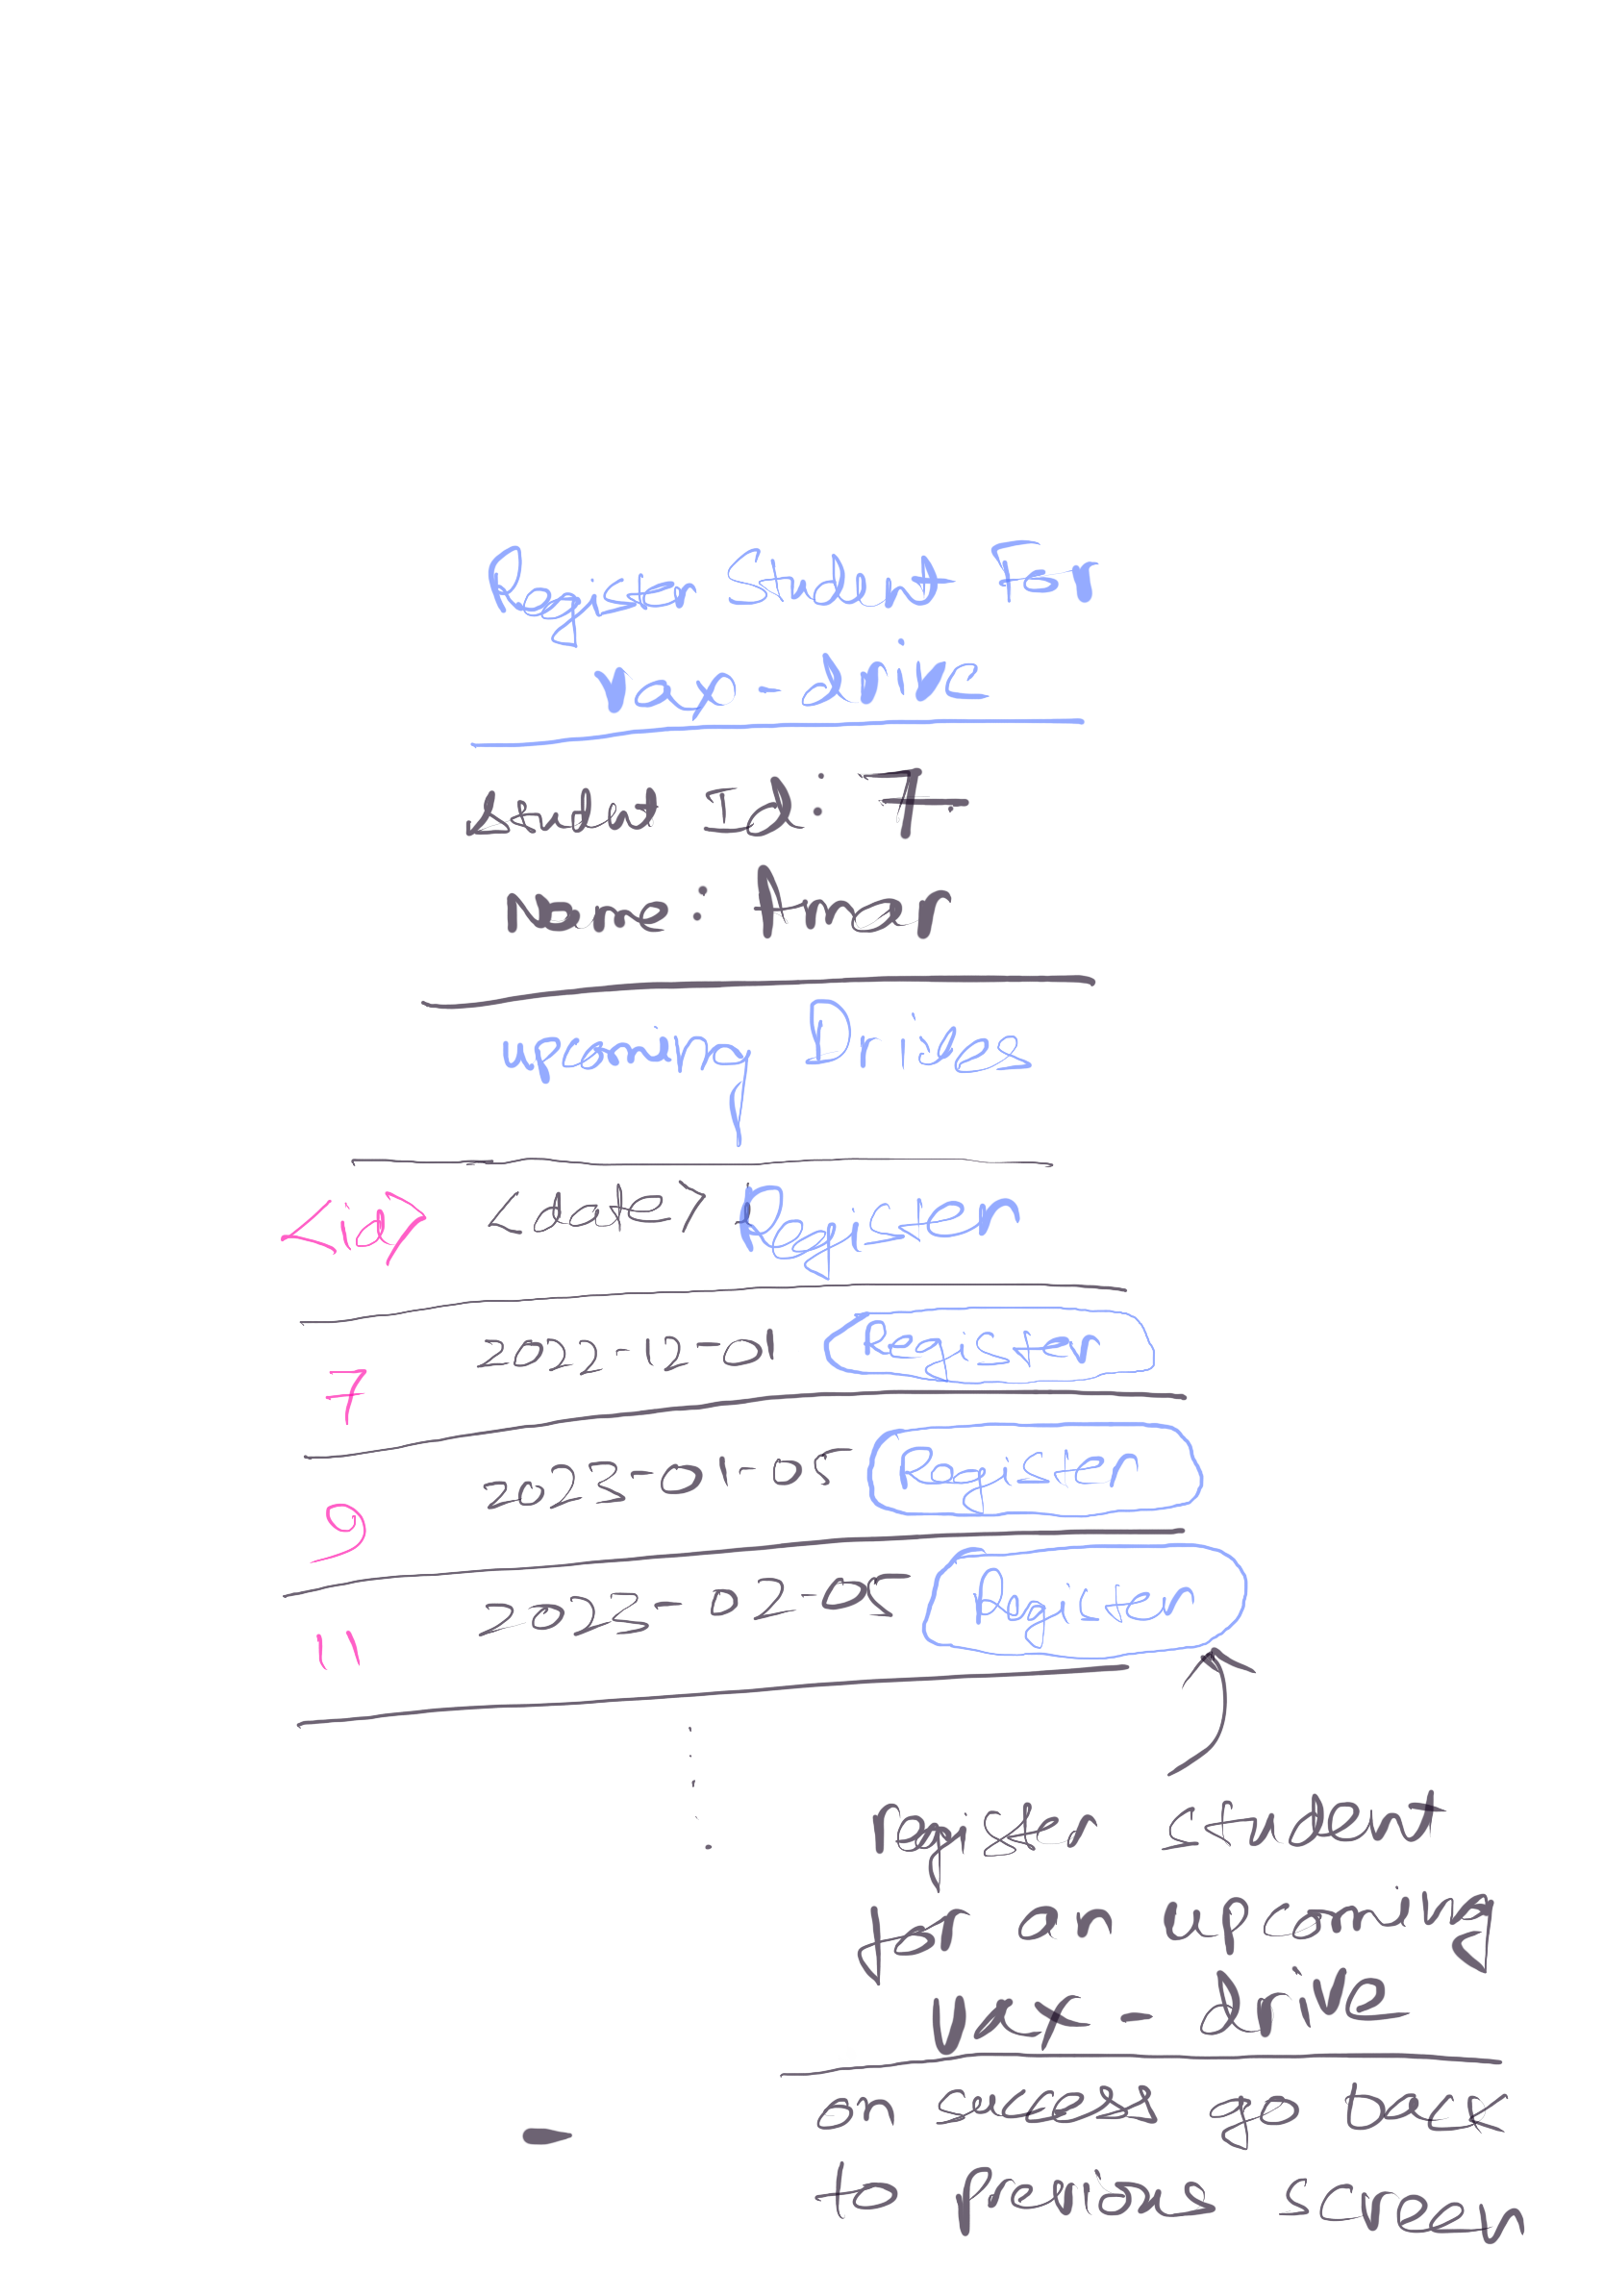 Register Student For
vax-drive
Student Id: 7
Name: Amar
upcoming Drives
<id> <date> Register
7 2022-12-01 Register
9 2023-01-05 Register
11 2023-02-05 Register
register student
for an upcoming
vax-drive
on success go back
to previous screen